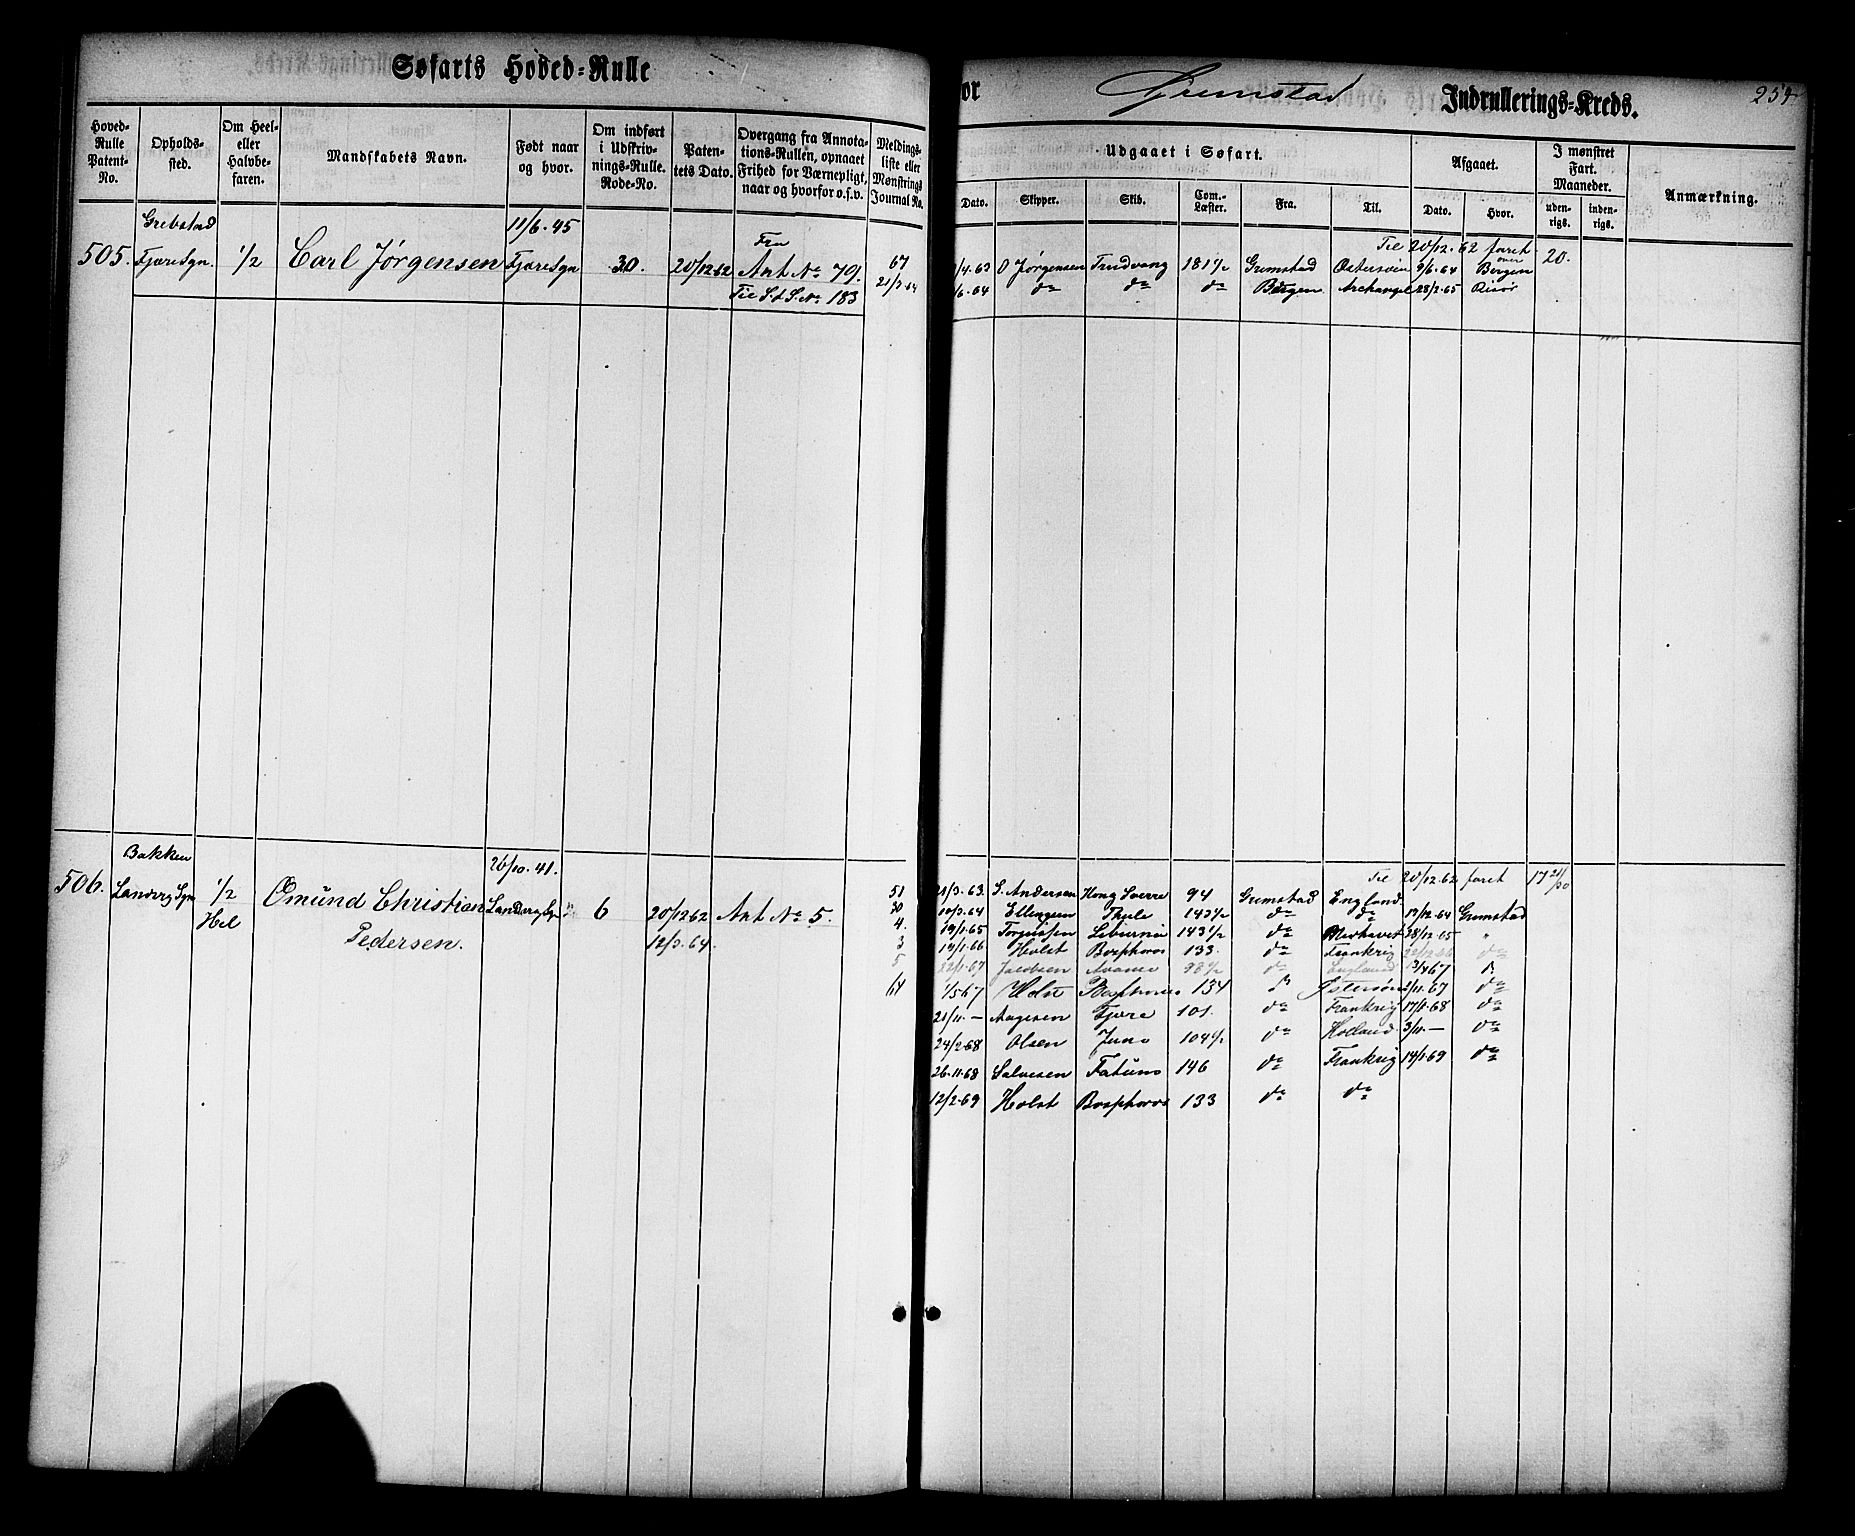 Søfarts Hoved-Rulle
for Grimstad Indrullerings-Kreds. 254
Hoved-Rulle Patent-No. | Opholds-sted. | Om Heel- eller Halvbe-faren. | Mandskabets Navn. | Født naar og hvor. | Om indført i Udskriv-nings-Rulle. Rode-No. | Paten-tets Dato. | Overgang fra Annota-tions-Rullen, opnaaet Frihed for Værnepligt, naar og hvorfor o.s.v. | Meldings-liste eller Mønstrings Journal No.
Udgaaet i Søfart. | Afgaaet. | I mønstret Fart. Maaneder. | Anmærkning.
Dato. | Skipper. | Skib. | Com.-Læster. | Fra. | Til. | Dato. | Hvor. | uden-rigs. | inden-rigs.
Grebstad 11/6. 45 Fra
505. Fjære Sgn. 1/2 Carl Jørgensen Fjære Sgn 30. 20/12 62 Ant No 791. 67
Til S. d S. No 183 21/3 64
Til 20/12. 62 faret 20.
/4. 63 O Jørgensen Trudvang 181 1/2 Grimstad Østersøen 9/6. 64 Bergen
/6. 64 do do do Bergen Archangel 28/2. 65 Risør
Bakken 26/10. 41.
506. Landvig Sgn 1/2 Omund Christian Landvig Sgn 6 20/12 62 Ant No 5. 51
Hel Pedersen. 12/3. 64.
30
4.
3
5
64
Til 20/12. 62 faret 17 21/30
21/3. 63. S. Andersen Kong Sverre 94 Grimstad England
10/3. 64 Ellingsen Thule 143 1/2 do do 19/12. 64 Grimstad
19/1. 65 Torgussen Liburnia 143 1/2 do 28/12. 65 "
19/1. 66 Holst Bosphorus 133. do Frankrig 22/12 66 do
22/1. 67 Jacobsen 98 1/2 do England 13/4 67
1/5 67 Holst Bosphorus 134 Østersøen 2/11. 67 do
21/11. — Aagesen Fjære 101. do Frankrig 17/1. 68 do
24/2. 68 Olsen Juno 104 1/2 do Holland 3/11. — do
26. 11. 68 Salvesen Fatum 146 do Frankrig 14/1. 69 do
12/2. 69 Holst Bosphorus 133 do do